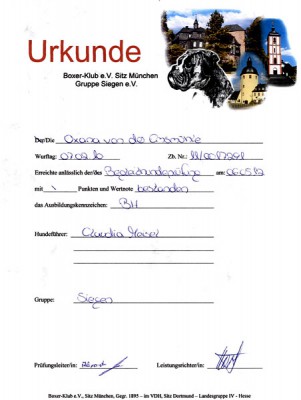 Urkunde
Boxer-Klub e.V. Sitz München
Gruppe Siegen e.V.
Der/Die Oxana von der
Wurftag: 07.09.10 Zb. Nr.:
Erreichte anlässlich der/des Begleithundeprüfung am:
mit \ Punkten und Wertnote bestanden
das Ausbildungskennzeichen: BH
Hundeführer: Claudia
Gruppe: Siegen
Prüfungsleiter/in: Leistungsrichter/in:
Boxer-Klub e.V., Sitz München, Gegr. 1895 – im VDH, Sitz Dortmund – Landesgruppe IV - Hesse